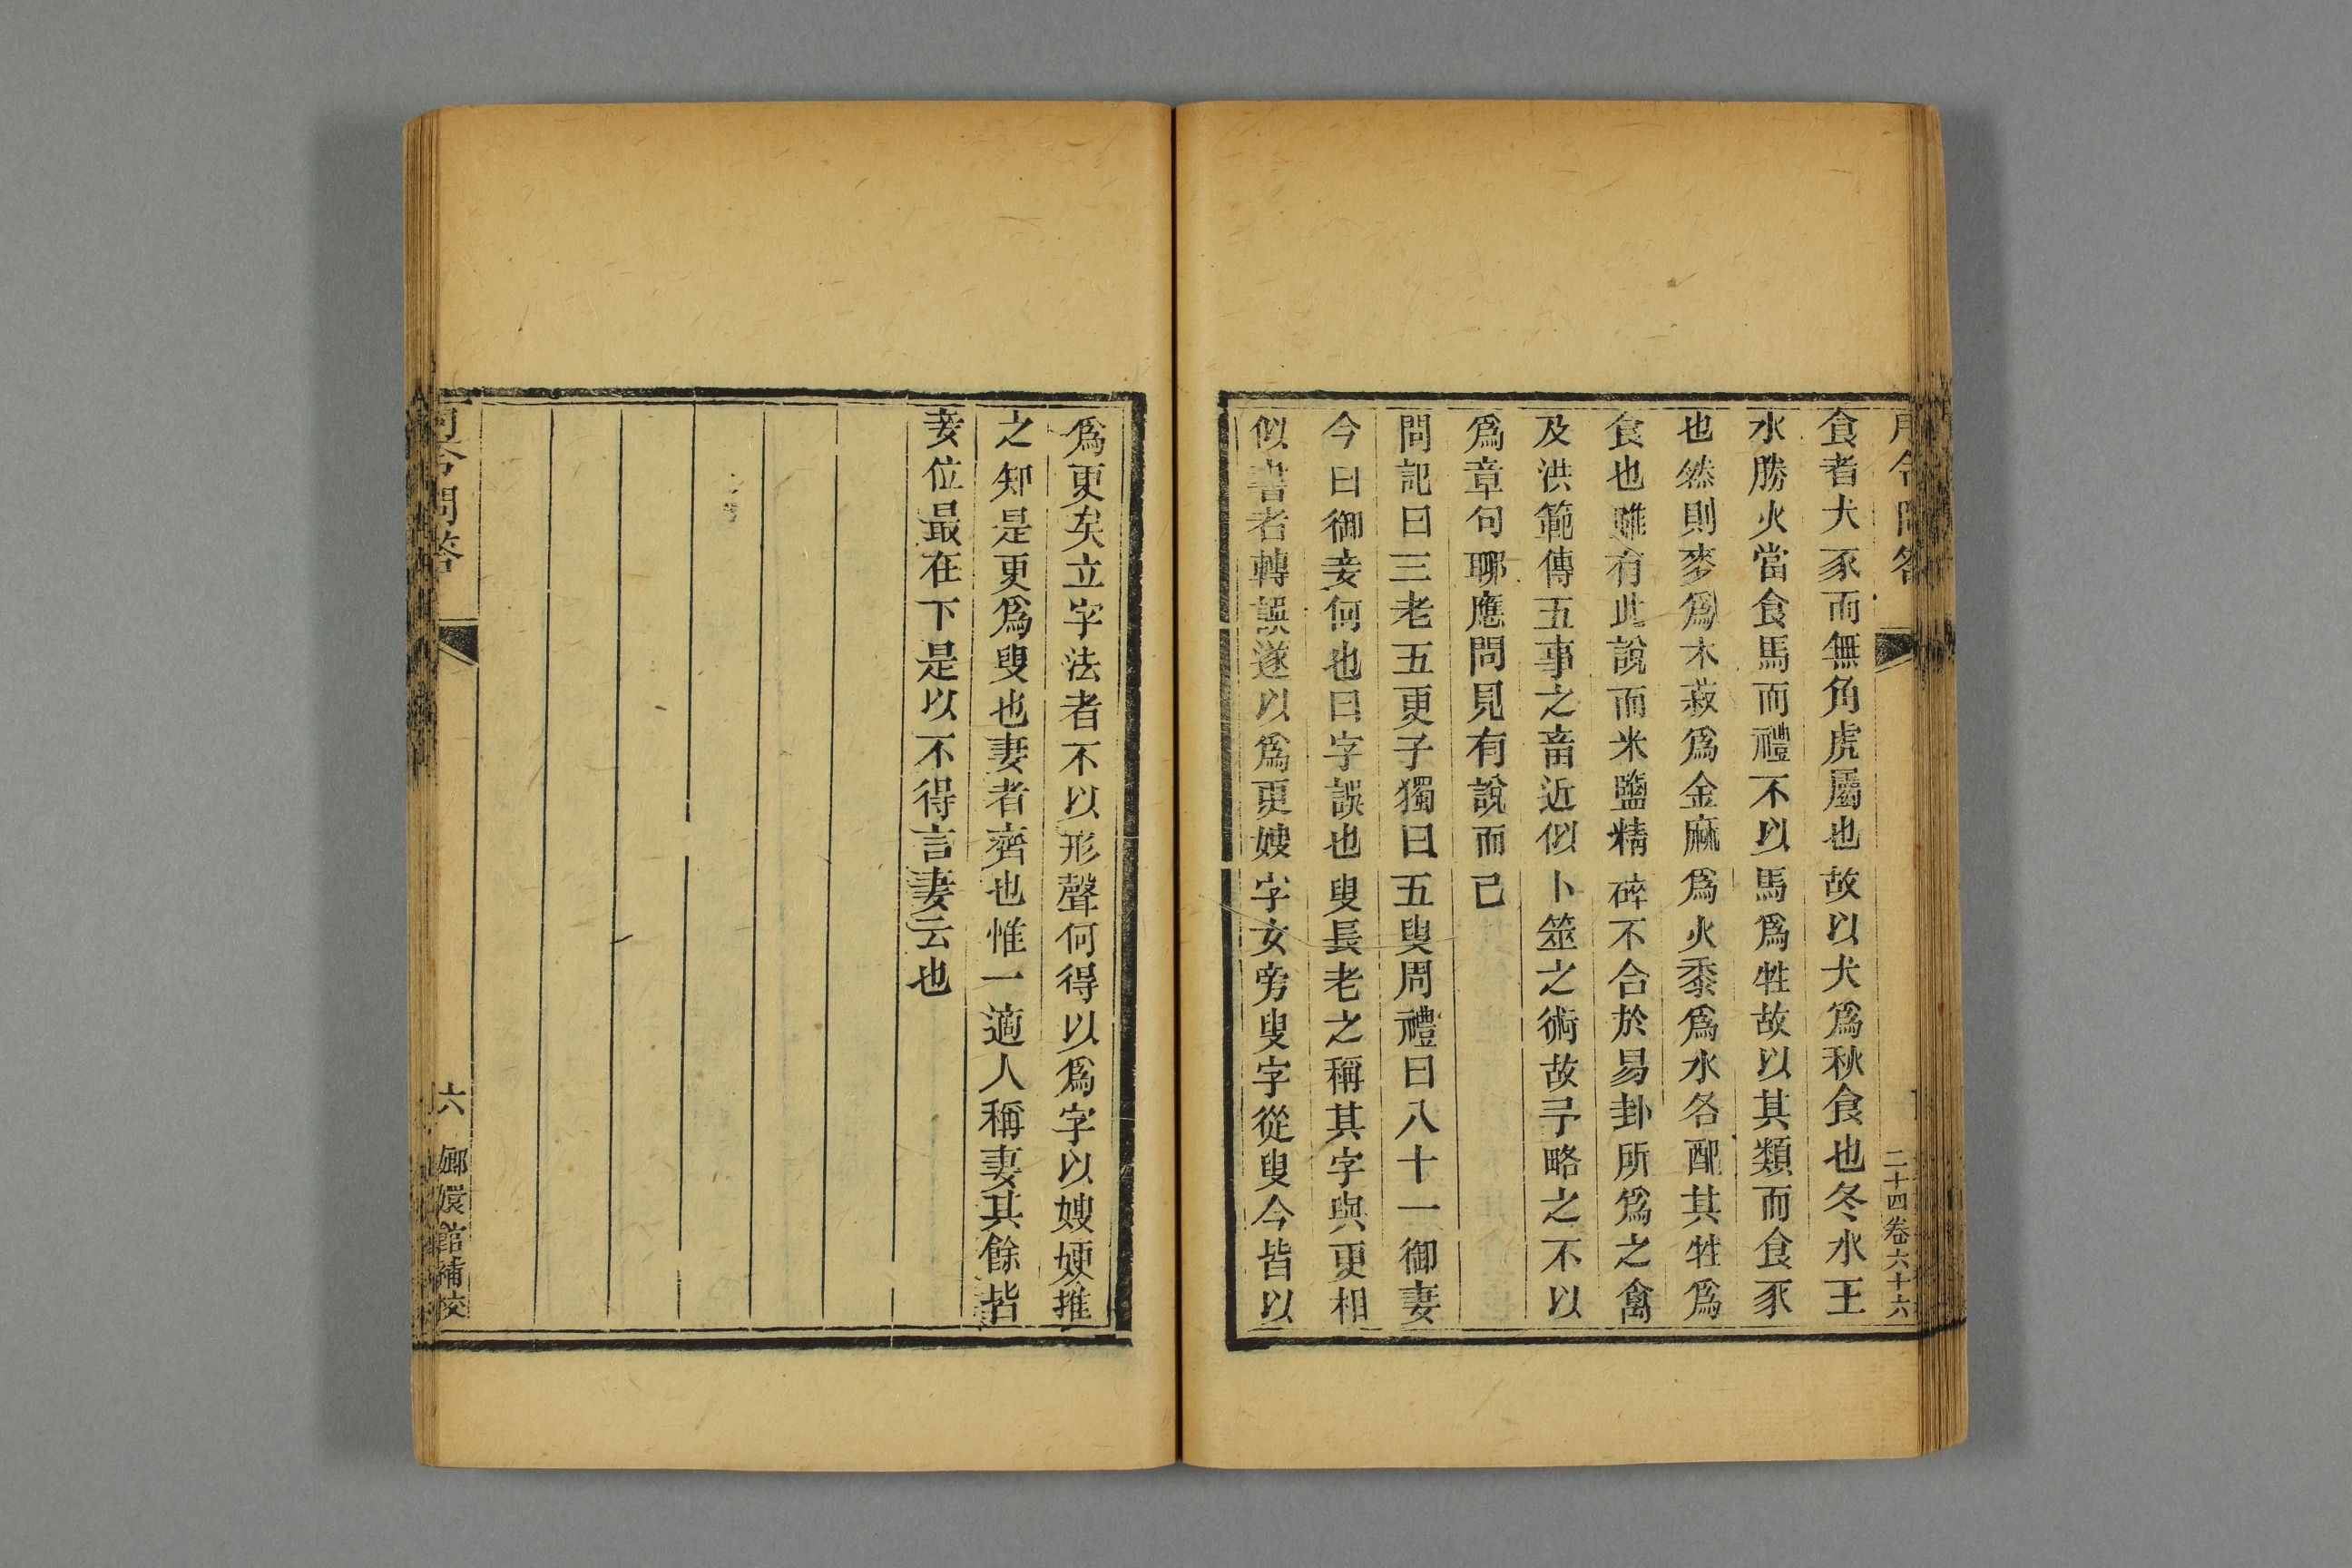 月令問答
二十四卷六十六
食者犬豕而無角虎屬也故以犬爲秋食也冬水王
水勝火當食馬而禮不以馬爲牲故以其類而食豕
也然則麥爲木菽爲金麻爲火黍爲水各配其牲爲
食也雖有此說而米鹽精碎不合於易卦所爲之禽
及洪範傳五事之畜近似卜筮之術故予略之不以
爲章句聊應問見有說而已
問記曰三老五更子獨曰五叟周禮曰八十一御妻
今曰御妾何也曰字誤也叟長老之稱其字與更相
似書者轉誤遂以爲更嫂字女旁叟字從叟今皆以
爲更矣立字法者不以形聲何得以爲字以嫂㛐推
之知是更爲叟也妻者齊也惟一適人稱妻其餘皆
妾位最在下是以不得言妻云也
月令問答
六
嫏嬛館補校